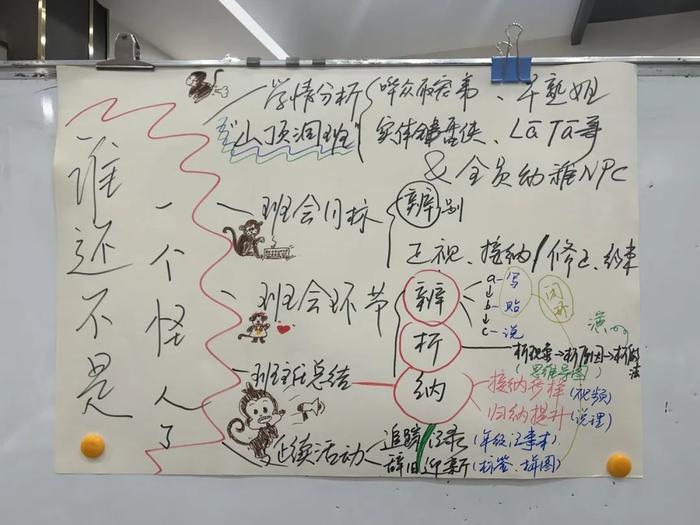 谁还不是
一个怪人了
一 学情分析
山顶洞班
哗众取宠弟、半熟姐
实体键盘侠、Lā Tā哥
& 全员幼稚NPC
二 班会目标
辨别
正视、接纳/修正、约束
班会环节
辨
a-写
b-贴
c-说
析
析现象→析原因→析做法
(思维导图)
纳
接纳抉择(视频)
归纳提升(说理)
班主任总结
延续活动
追踪记录(年级记事本)
辞旧迎新(标签、拼图)